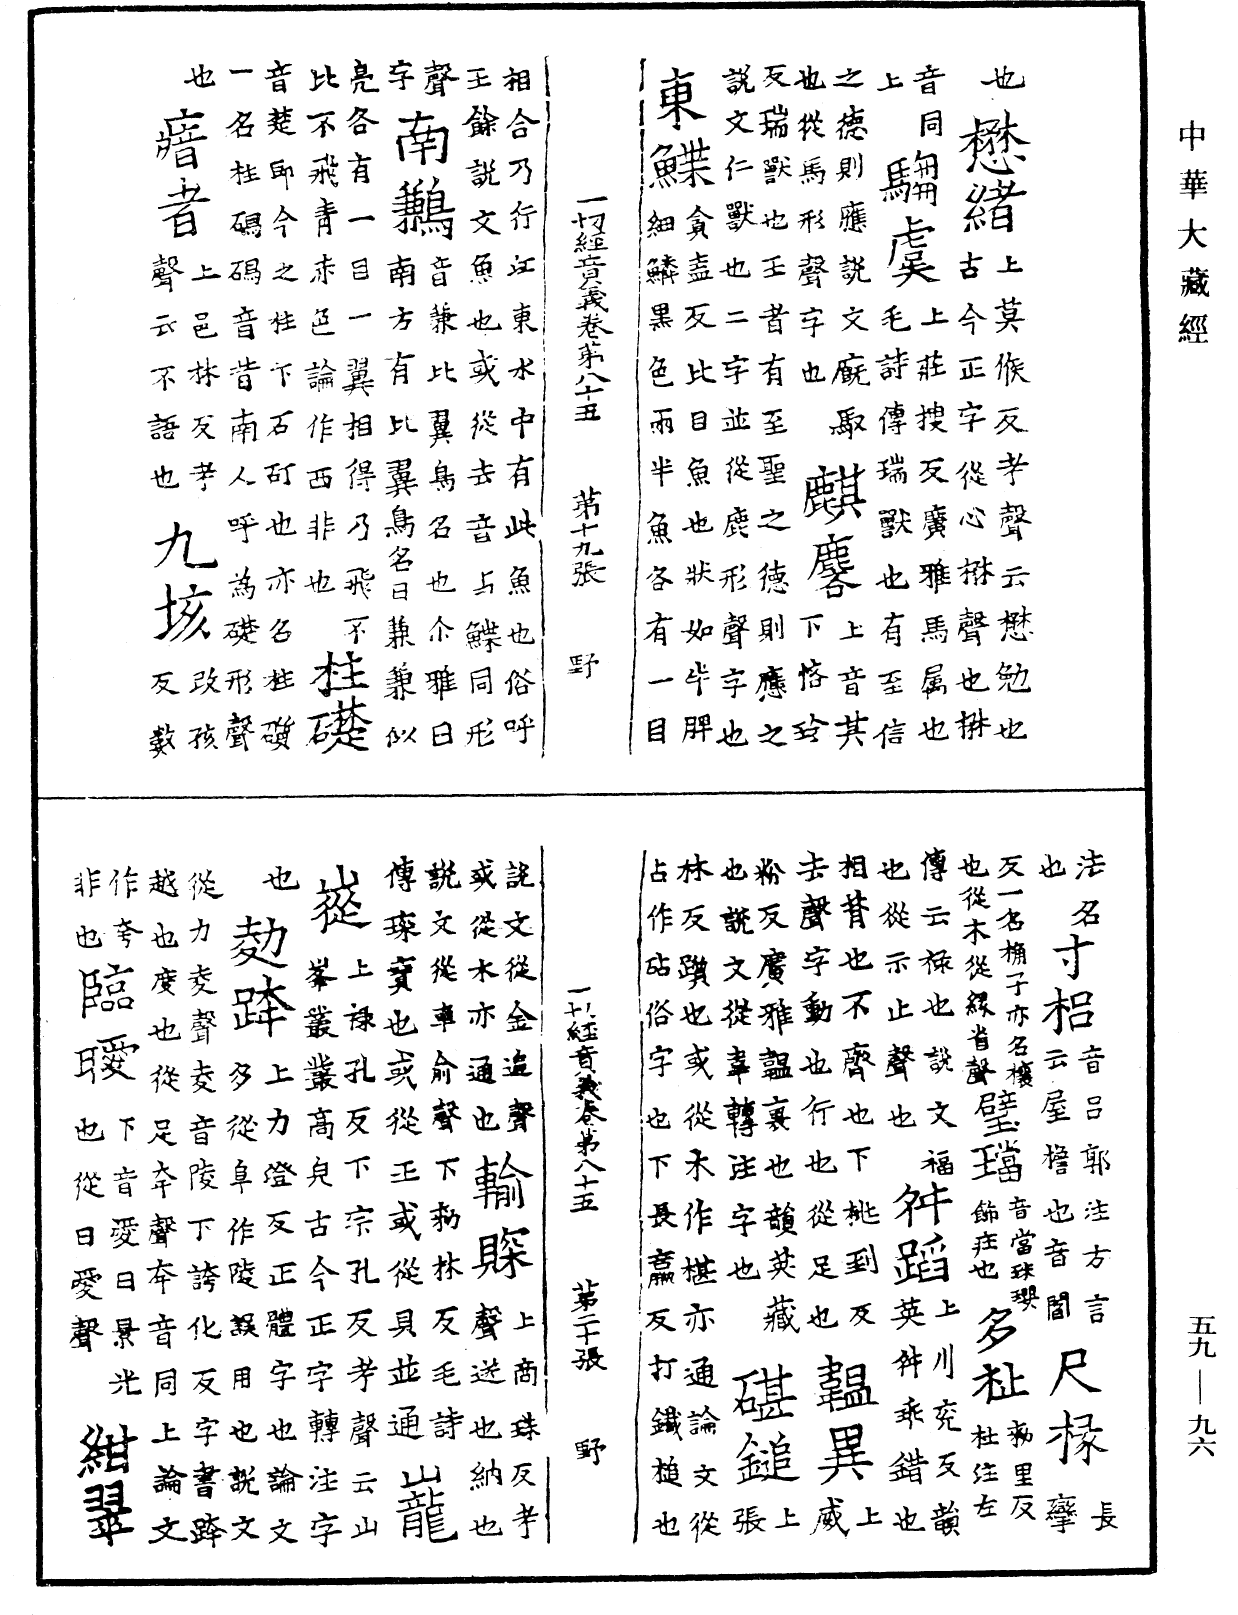 中華大藏經
也懋緒上莫候反考聲云懋勉也
古今正字從心楙聲也楙
音同騶虞上莊搜反廣雅馬属也
上毛詩傳瑞獸也有至信
之德則應說文廐馭
也從馬形聲字也麒麐上音其
下悋玲
反瑞獸也王者有至聖之德則應之
說文仁獸也二字並從鹿形聲字也
東鰈貪盍反比目魚也狀如牛脾
細鱗黑色兩半魚各有一目
一切經音義卷第八十五 第十九張 野
相合乃行江東水中有此魚也俗呼
王餘說文魚也或從去音与鰈同形
聲
字南鶼音兼比翼鳥名也尒雅曰
南方有比翼鳥名曰鶼鶼似
鳧各有一目一翼相得乃飛不
比不飛青赤色論作西非也柱礎
音楚即今之柱下石矴也亦名柱礩
一名柱磶磶音昔南人呼為礎形聲
也瘖者上邑林反考
聲云不語也九垓改孩
反數
法名寸梠音呂郭注方言
云屋檐也音閻尺椽長
攣
也
反一名桷子亦名榱
也從木從緣省聲璧璫音當珠瓔
飾莊也多祉勑里反
杜注左
傳云祿也說文福
也從示止聲也舛蹈上川兗反韻
英舛乖錯也
相背也不齊也下桃到反
去聲字動也行也從足也韞異上
威
粉反廣雅韞裹也韻英藏
也說文從韋轉注字也碪鎚上
張
林反躓也或從木作椹亦通論文從
占作砧俗字也下長藟反打鐵槌也
一切經音義卷第八十五 第二十張 野
說文從金追聲
或從木亦通也輸賝上商珠反考
聲送也納也
說文從車俞聲下勑林反毛詩
傳琛寶也或從玉或從貝並通巃
嵸上祿孔反下宗孔反考聲云山
峯叢叢高皃古今正字轉注字
也
勊跨上力澄反正體字也論文
多從阜作陵誤用也說文
從力夌聲夌音陵下誇化反字書跨
越也度也從足夸聲夸音同上論文
作夸
非也臨曖下音愛日景光
也從日愛聲紺翠
五九—九六